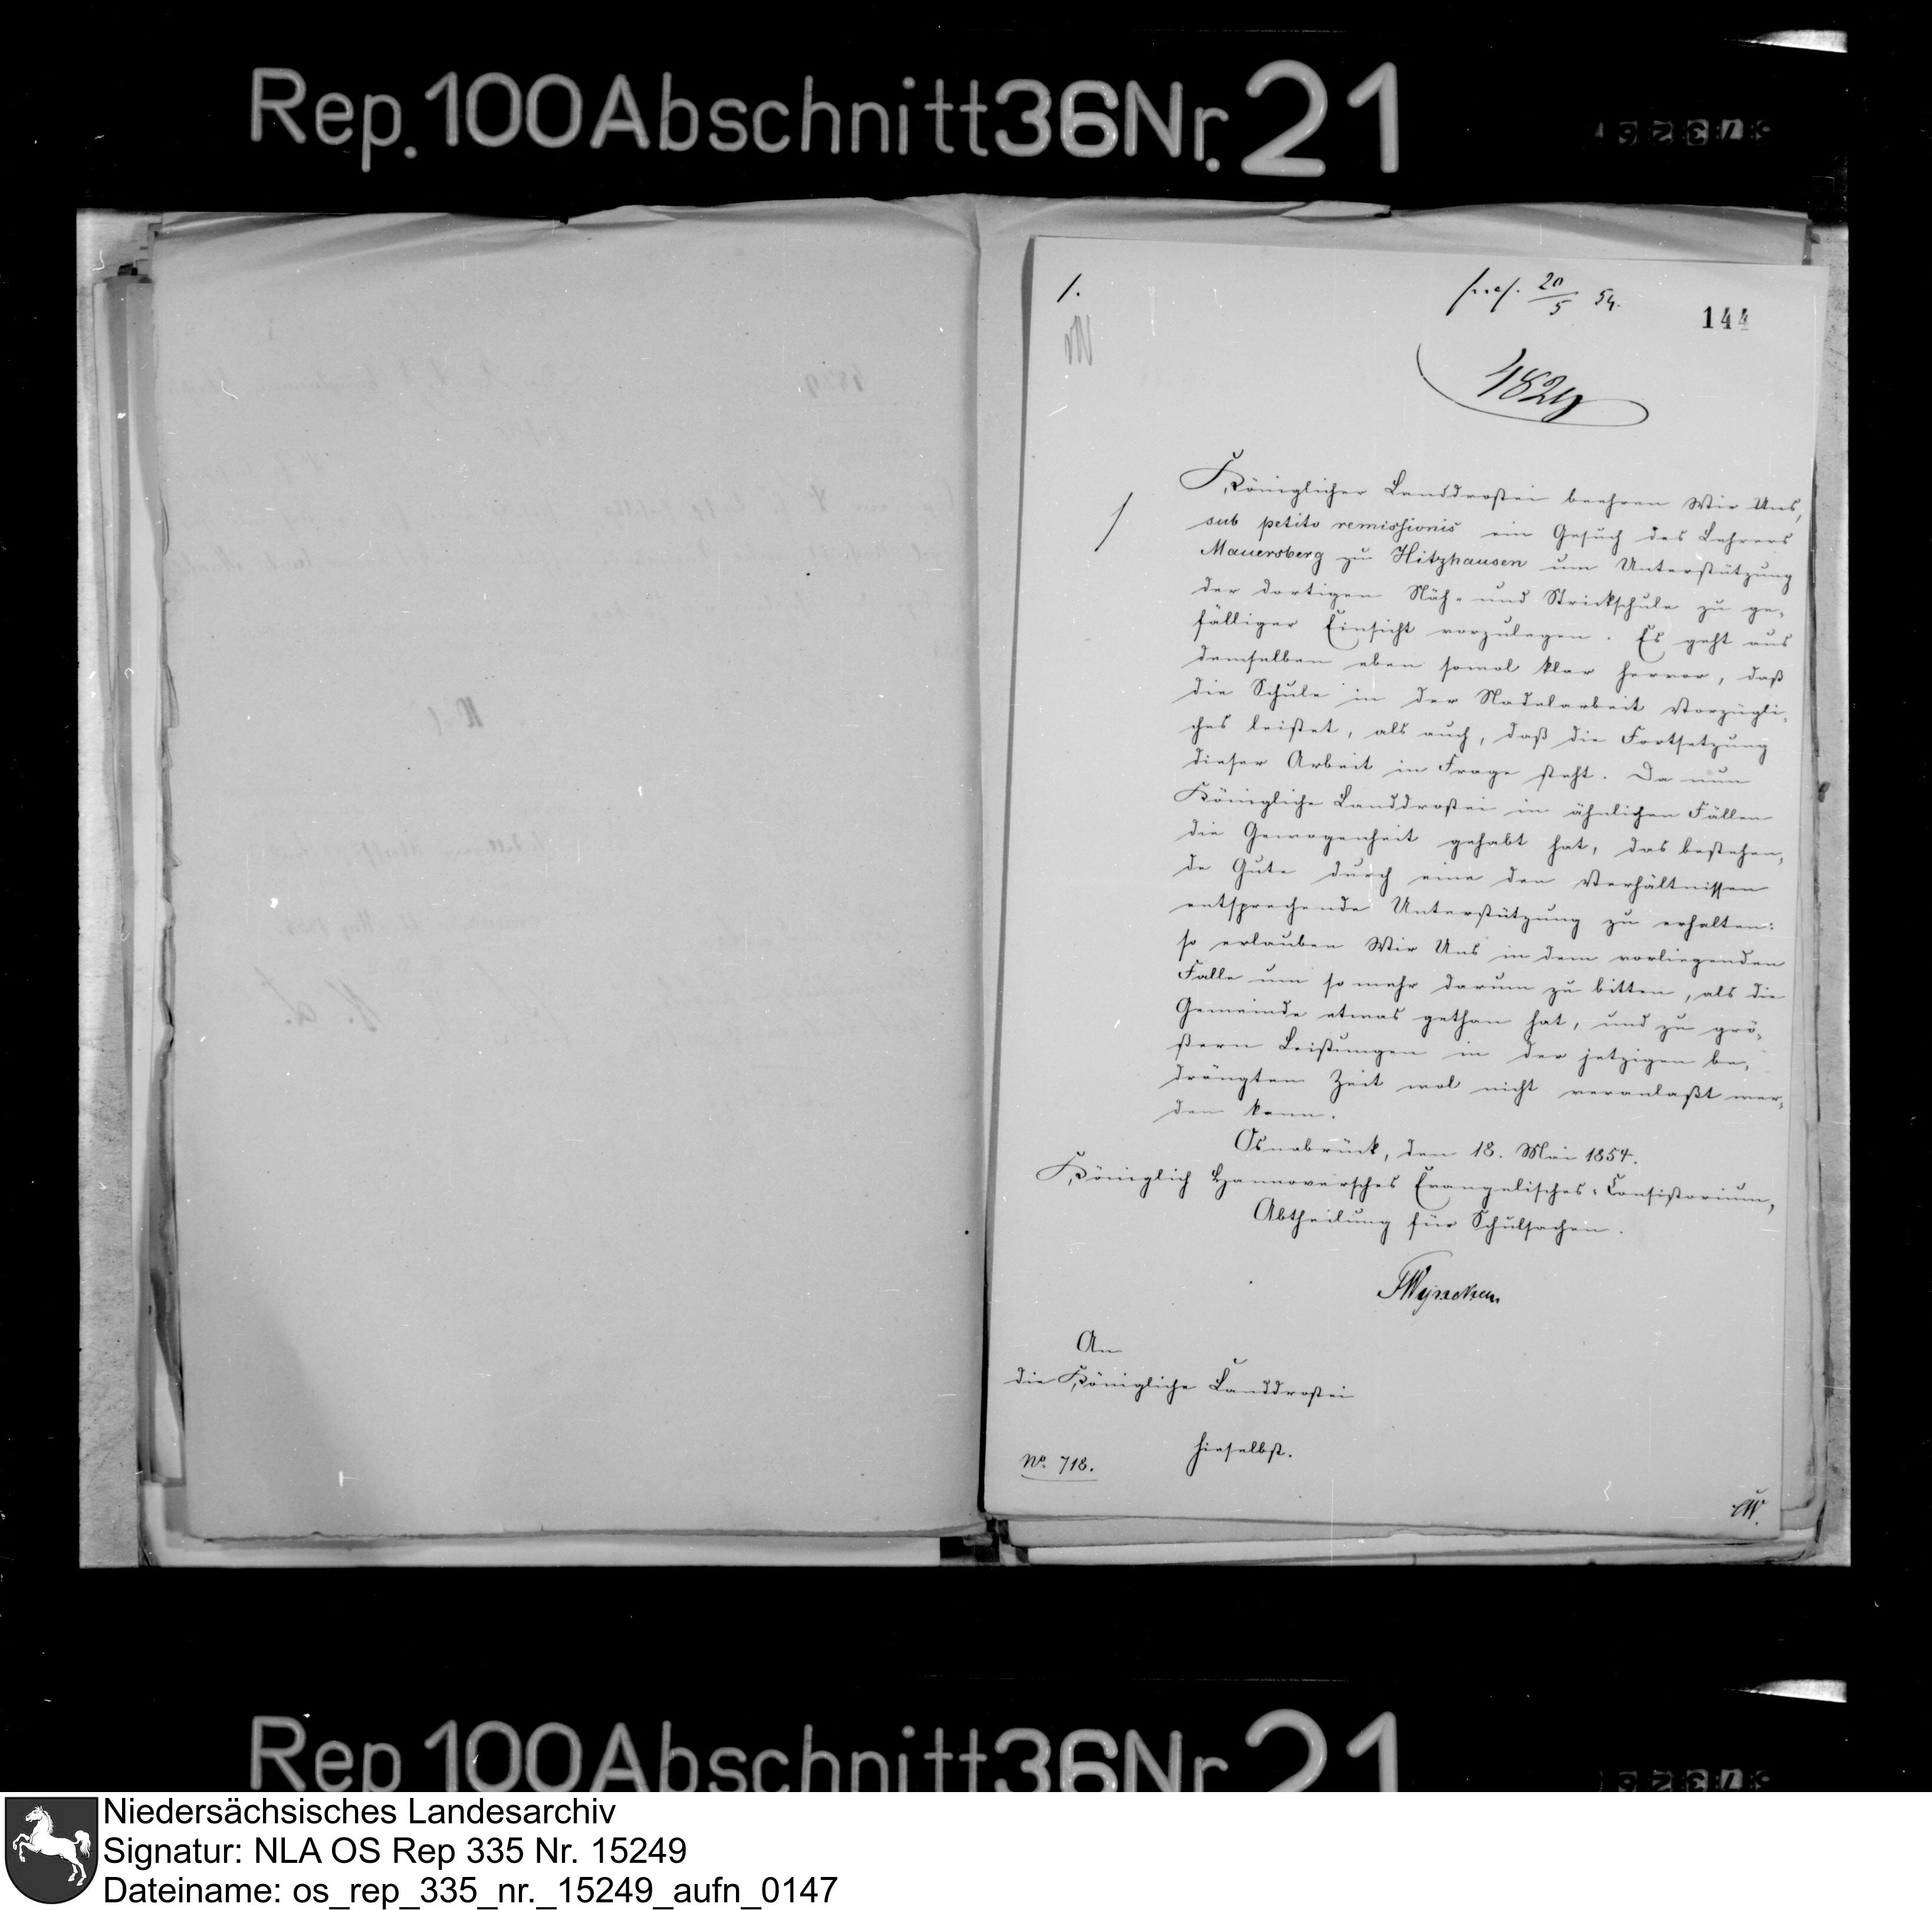 Rep. 100 Abschnitt 36 Nr. 21
1.
präs. 20/5 54.
144
4829
Königlicher Landdrostei beehren Wir Uns,
sub petito remissionis ein Gesuch des Lehrers
Mauersberg zu Hitzhausen um Unterstützung
der dortigen Näh- und Strickschule zu ge-
fälliger Einsicht vorzulegen. Es geht aus
demselben eben sowol klar hervor, daß
die Schule in der Nadelarbeit Vorzügli-
ches leistet, als auch, daß die Fortsetzung
dieser Arbeit in Frage steht. Da nun
Königliche Landdrostei in ähnlichen Fällen
die Gewogenheit gehabt hat, das bestehen-
de Gute durch eine den Verhältnissen
entsprechende Unterstützung zu erhalten:
so erlauben Wir Uns in dem vorliegenden
Falle um so mehr darum zu bitten, als die
Gemeinde etwas gethan hat, und zu grö-
ßern Leistungen in der jetzigen be-
drängten Zeit wol nicht veranlaßt wer-
den kann.
Osnabrück, den 18. Mai 1854.
Königlich Hannoversches Evangelisches-Consistorium,
Abtheilung für Schulsachen.
An
die Königliche Landdrostei
hieselbst.
No. 718.
Rep. 100 Abschnitt 36 Nr. 21
Niedersächsisches Landesarchiv
Signatur: NLA OS Rep 335 Nr. 15249
Dateiname: os_rep_335_nr._15249_aufn_0147